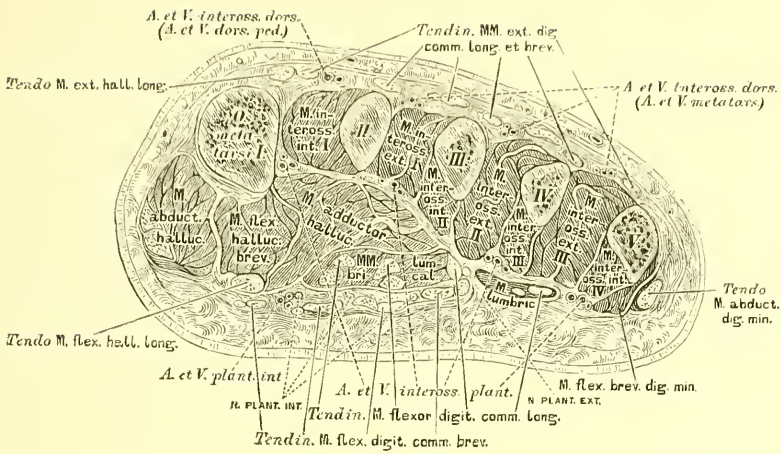 A. et V. inteross. dors.
(A. et V. dors. ped.)
Tendin. MM. ext. dig.
comm. long. et brev.
Tendo M. ext. hall. long.
A et V. inteross. dors.
(A. et V. metatars.)
O.
meta
tarsi I.
M. in-
teross.
int. I
II
M. in
teross.
ext. I
III
M.
inter
oss.
int.
II
M.
inter
oss.
ext.
II
IV
M.
inter
oss.
int.
III
M.
inter
oss.
ext.
III
V
M.
inter
oss. int.
IV
M.
abduct.
halluc.
M. flex.
halluc.
brev.
M. adductor
halluc.
MM.
lum
bri
cal
M.
lumbric
Tendo
M. abduct.
dig. min.
Tendo M. flex. hall. long.
A. et V. plant. int
A. et V. inteross. plant.
M. flex. brev. dig. min.
N. PLANT. INT.
N PLANT. EXT.
Tendin. M. flexor digit. comm. long.
Tendin. M. flex. digit. comm. brev.